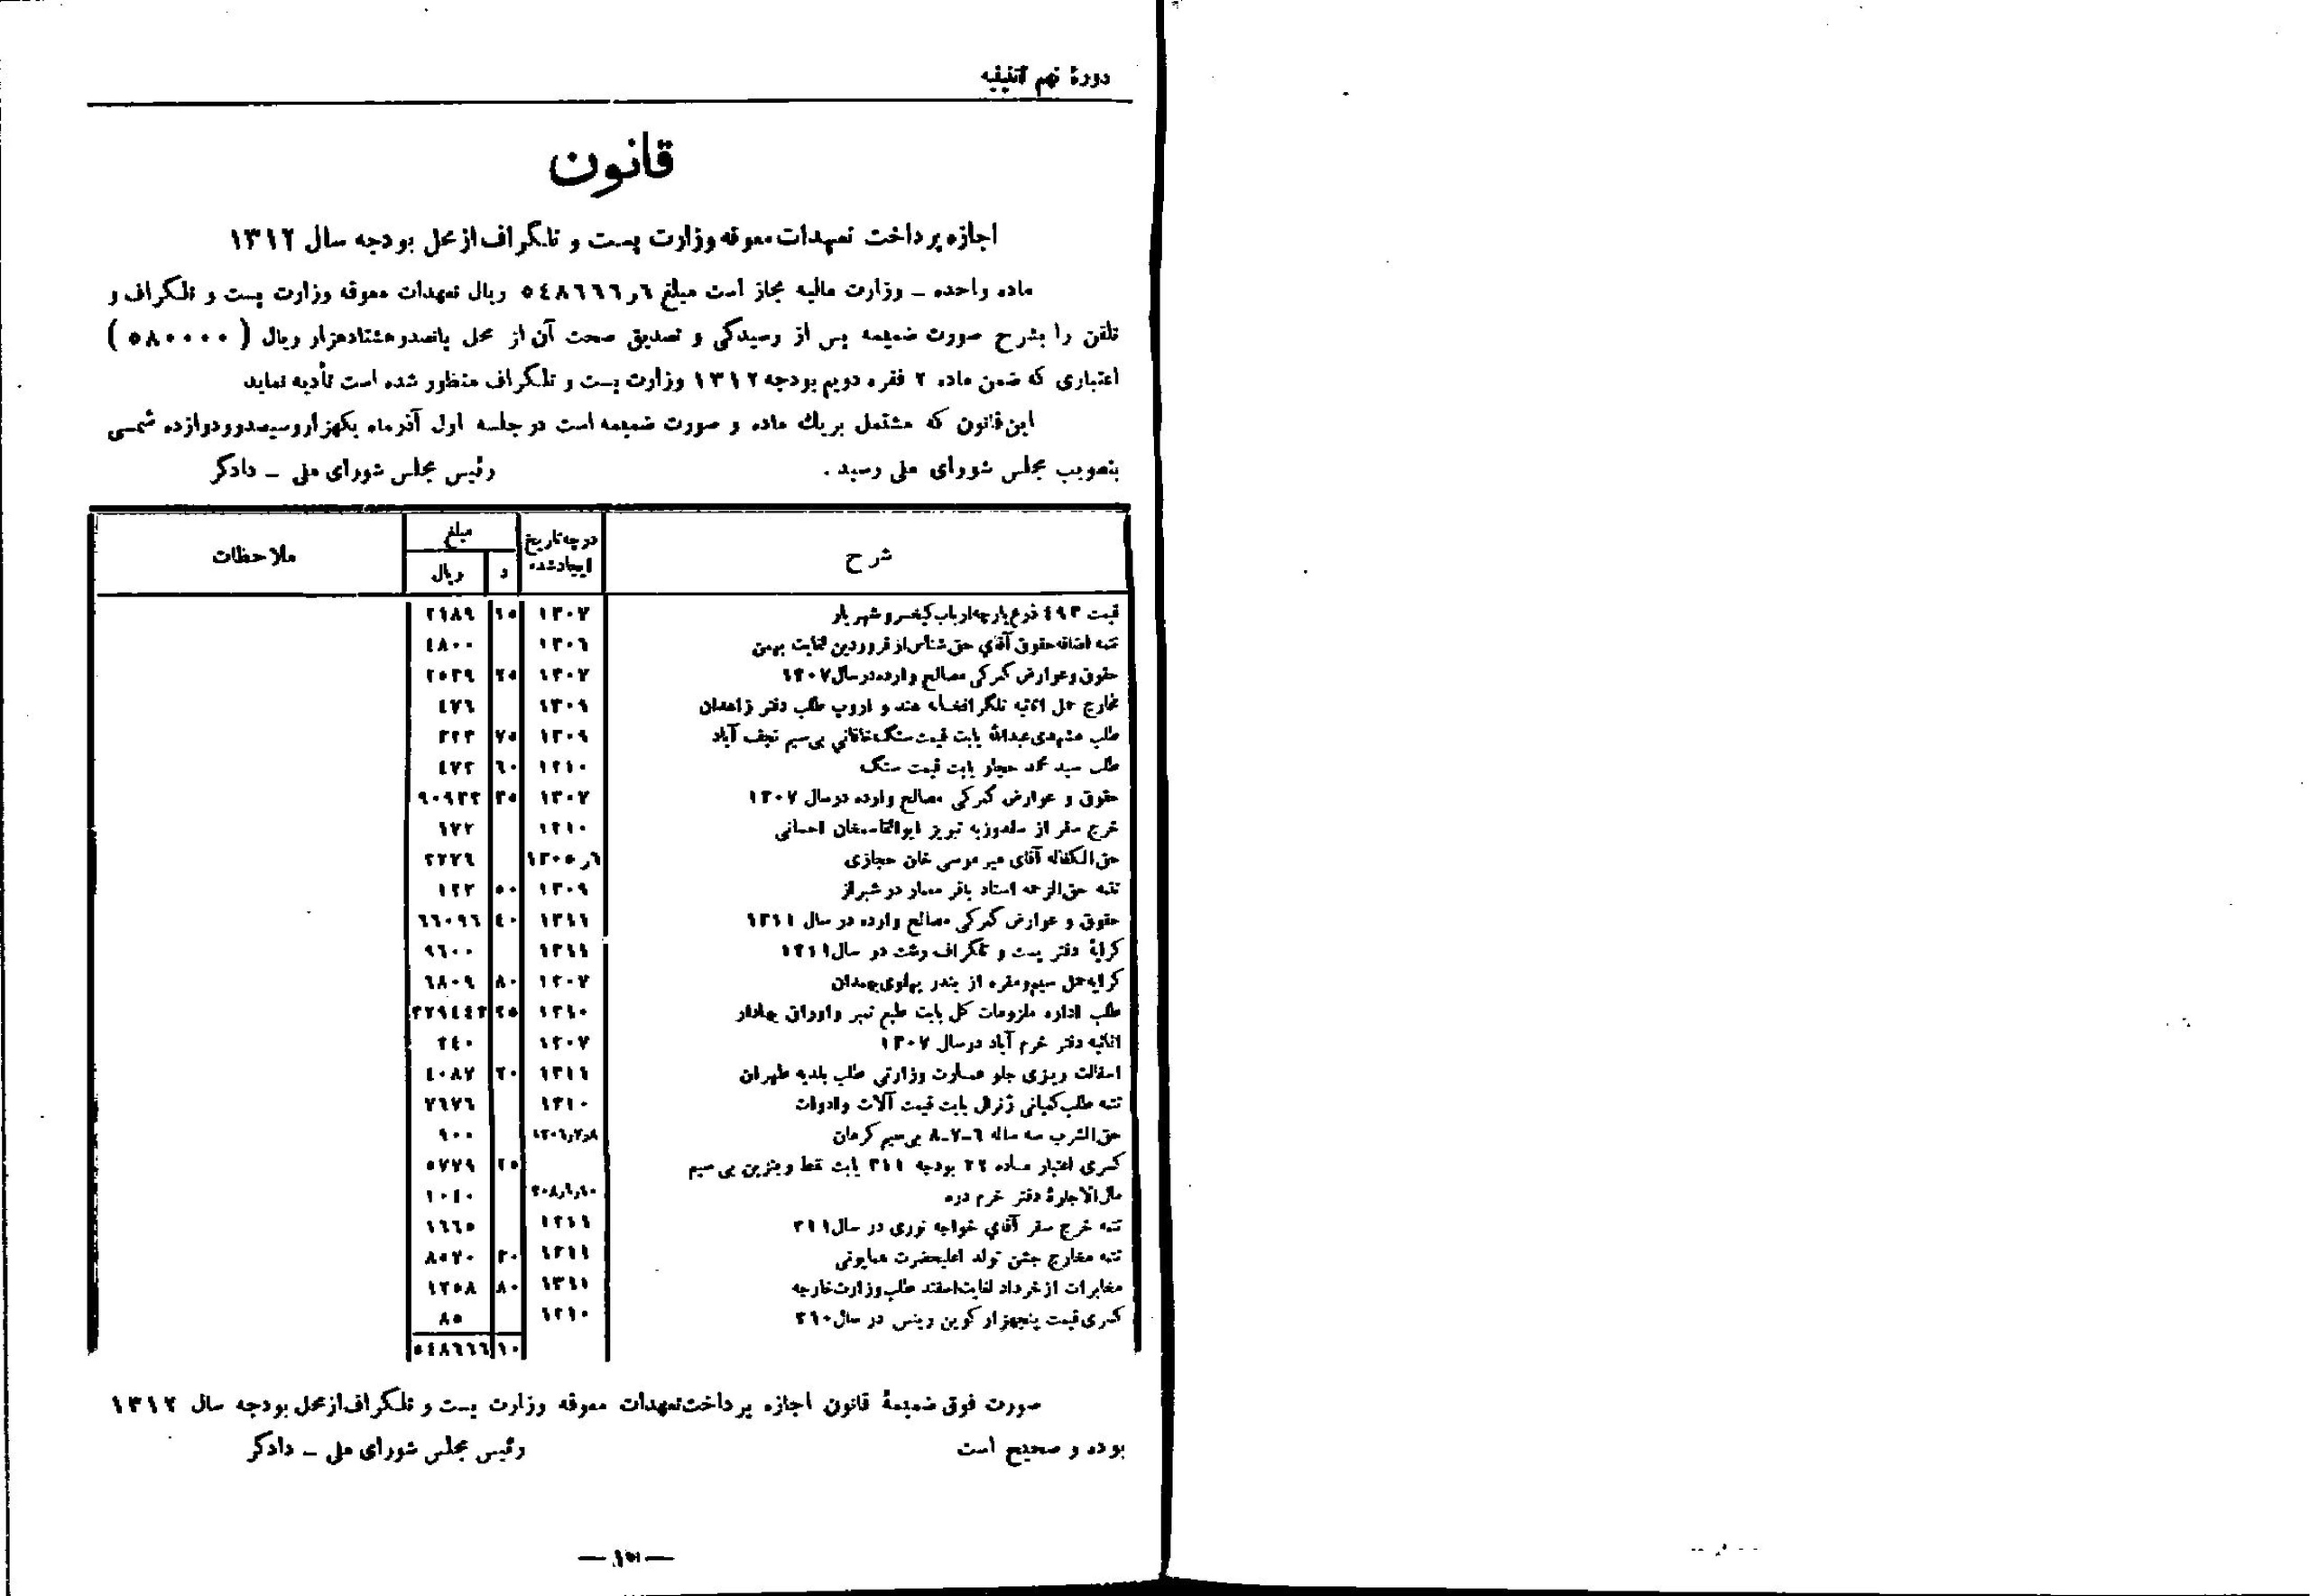 دورهٔ نهم تقنینیه
قانون
اجازه پرداخت تعهدات معوقه وزارت پست و تلگراف از محل بودجه سال ۱۳۱۲
ماده واحده ــ وزارت مالیه مجاز است مبلغ ۶ر۵٤۸٦٦٦ ریال تعهدات معوقه وزارت پست و تلگراف و
تلفن را بشرح صورت ضمیمه پس از رسیدگی و تصدیق صحت آن از محل پانصدوهشتادهزار ریال ( ۵۸۰۰۰۰ )
اعتباری که ضمن ماده ۲ فقره دویم بودجه ۱۳۱۲ وزارت پست و تلگراف منظور شده است تأدیه نماید
این قانون که مشتمل بر یك ماده و صورت ضمیمه است در جلسه اول آذرماه یکهزاروسیصدودوازده شمسی
بتصویب مجلس شورای ملی رسید .
رئیس مجلس شورای ملی ــ دادگر
شرح درچه تاریخ ایجادشده مبلغ د ریال ملاحظات
قیمت ٤۹۳ ذرع پارچه ارباب کیخسرو شهریار ۱۳۰۷ ۱۵
تتمه اضافه حقوق آقای حق شناس از فروردین لغایت بهمن ۱۳۰٦ ٤۸۰۰
حقوق و عوارض گمرکی مصالح وارده در سال ۱۳۰۷ ۱۳۰۷
مخارج حمل اثاثیه تلگرافخانه هند و اروپ طلب دفتر زاهدان ۱۳۰۹ ٤۷٦
طلب مشهدی عبدالله بابت قیمت سنگ بی سیم نجف آباد ۱۳۰۹ ۷۵
طلب سید محمد حجار بابت قیمت سنگ ۱۳۱۰ ٦۰
حقوق و عوارض گمرکی مصالح وارده در سال ۱۳۰۷ ۱۳۰۷
خرج سفر از به تبریز ابوالقاسمخان احسانی ۱۳۱۰
حق الکفاله آقای میر موسی خان حجازی ٦ر۱۳۰۵
تتمه حق الزحمه استاد باقر معمار در شیراز ۱۳۰۹ ۵۰
حقوق و عوارض گمرکی مصالح وارده در سال ۱۳۱۱ ۱۳۱۱ ٤۰ ٦٦۰۹٦
کرایهٔ دفتر پست و تلگراف رشت در سال ۱۳۱۱ ۱۳۱۱ ۹٦۰۰
کرایه حمل سیم و مقره از بندر پهلوی بهمدان ۱۳۰۷ ۸۰ ٦۸۰۹
طلب اداره ملزومات کل بابت طبع تمبر و اوراق بهادار ۱۳۱۰
اثاثیه دفتر خرم آباد در سال ۱۳۰۷ ۱۳۰۷
اسفالت ریزی جلو عمارت وزارتی طلب بلدیه طهران ۱۳۱۱ ٤۰۸۷
تتمه طلب کمپانی ژنرال بابت قیمت آلات و ادوات ۱۳۱۰
حق الشرب سه ساله ٦-۷-۸ بی سیم کرمان ۸ر۷ر۱۳۰٦ ۹۰۰
کسری اعتبار ماده ۲۲ بودجه ۳۱۱ بابت نفط و بنزین بی سیم ۵۷۷۹
مال الاجارهٔ دفتر خرم دره ۱۰ر۹ر۳۰۸ ۱۰٤۰
تتمه خرج سفر آقای خواجه نوری در سال ۳۱۱ ۱۳۱۱ ۱٦٦۵
تتمه مخارج جشن تولد اعلیحضرت همایونی ۱۳۱۱ ۸۵۷۰
مخابرات از خرداد لغایت اسفند طلب وزارت خارجه ۱۳۱۱ ۸۰
کسری قیمت پنجهزار کوپن رپنس در سال ۳۱۰ ۱۳۱۰ ۸۵
٦۰ ۵٤۸٦٦٦
صورت فوق ضمیمهٔ قانون اجازه پرداخت تعهدات معوقه وزارت پست و تلگراف از محل بودجه سال ۱۳۱۲
بوده و صحیح است
رئیس مجلس شورای ملی ــ دادگر